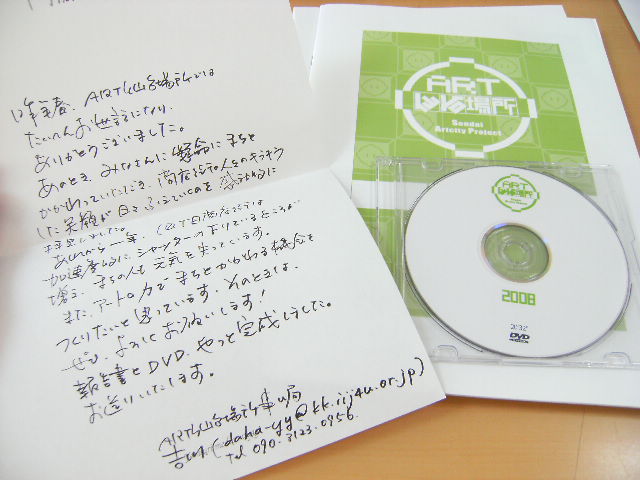 昨年春、ART仙台場所では
たいへんお世話になり、
ありがとうございました。
あのとき、みなさんに懸命にまちと
かかわっていただき、商店街の人々のキラキラ
した笑顔が日々ふえていくのを
あれから一年、
加速度的にシャッターの下りているところが
増え、まちの人も元気を失っています。
また、アートの力でまちとかかわる機会を
つくりたいと思っています。そのときは、
ぜひ、よろしくお願いします!
報告書とDVD、やっと完成しました。
お送りいたします。
ART仙台場所事ム局
吉川(daha-yy@kk.iij4u.or.jp)
Tel 090-3123-0956
ART
仙台場所
Sendai
Artcity Project
ART
仙台場所
2008
DVD